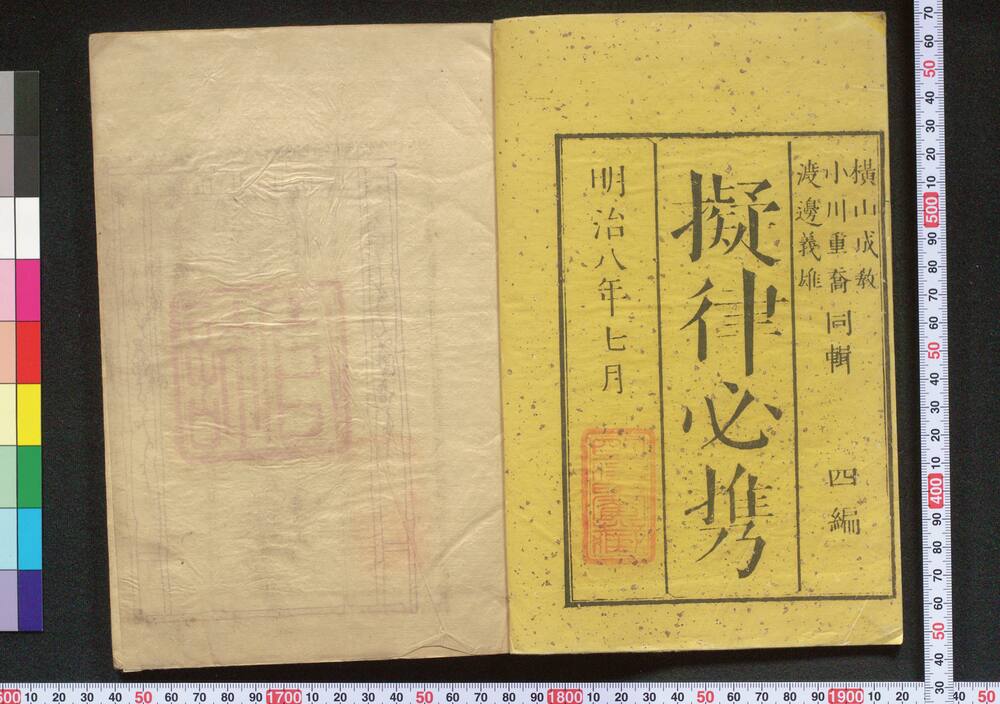 橫山成教
小川重喬 同輯 四編
渡邊義雄
擬律必携
明治八年七月